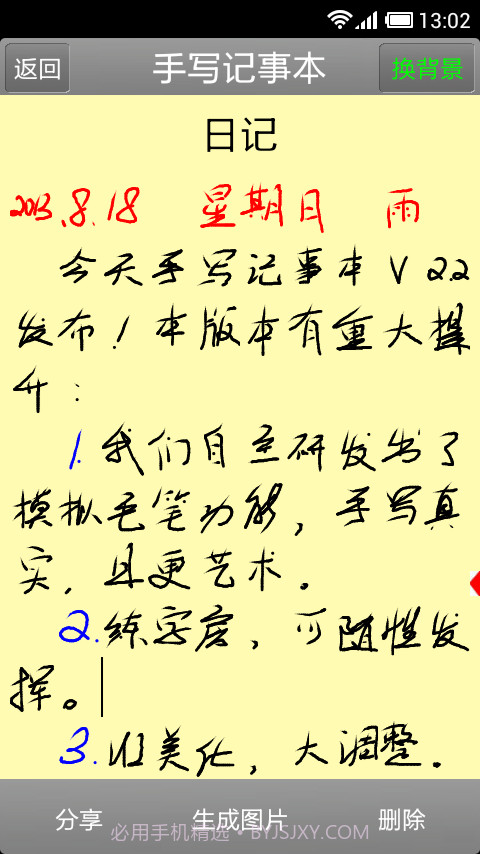 13:02
返回 手写记事本 换背景
日记
2013.8.18 星期日 雨
今天手写记事本V2.2
发布！本版本有重大提
升：
1.我们自主研发出了
模拟毛笔功能，手写真
实，且更艺术。
2.练字宝，可随性发
挥。
3.UI美化，大调整。
分享 生成图片 删除
必用手机精选 BYJSJXY.COM